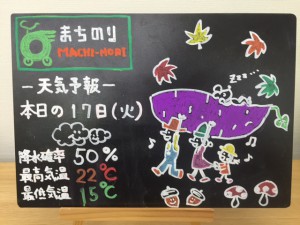 まちのり
MACHI-NORI
－天気予報－
本日の17日(火)
降水確率 50%
最高気温 22℃
最低気温 15℃
zzz...